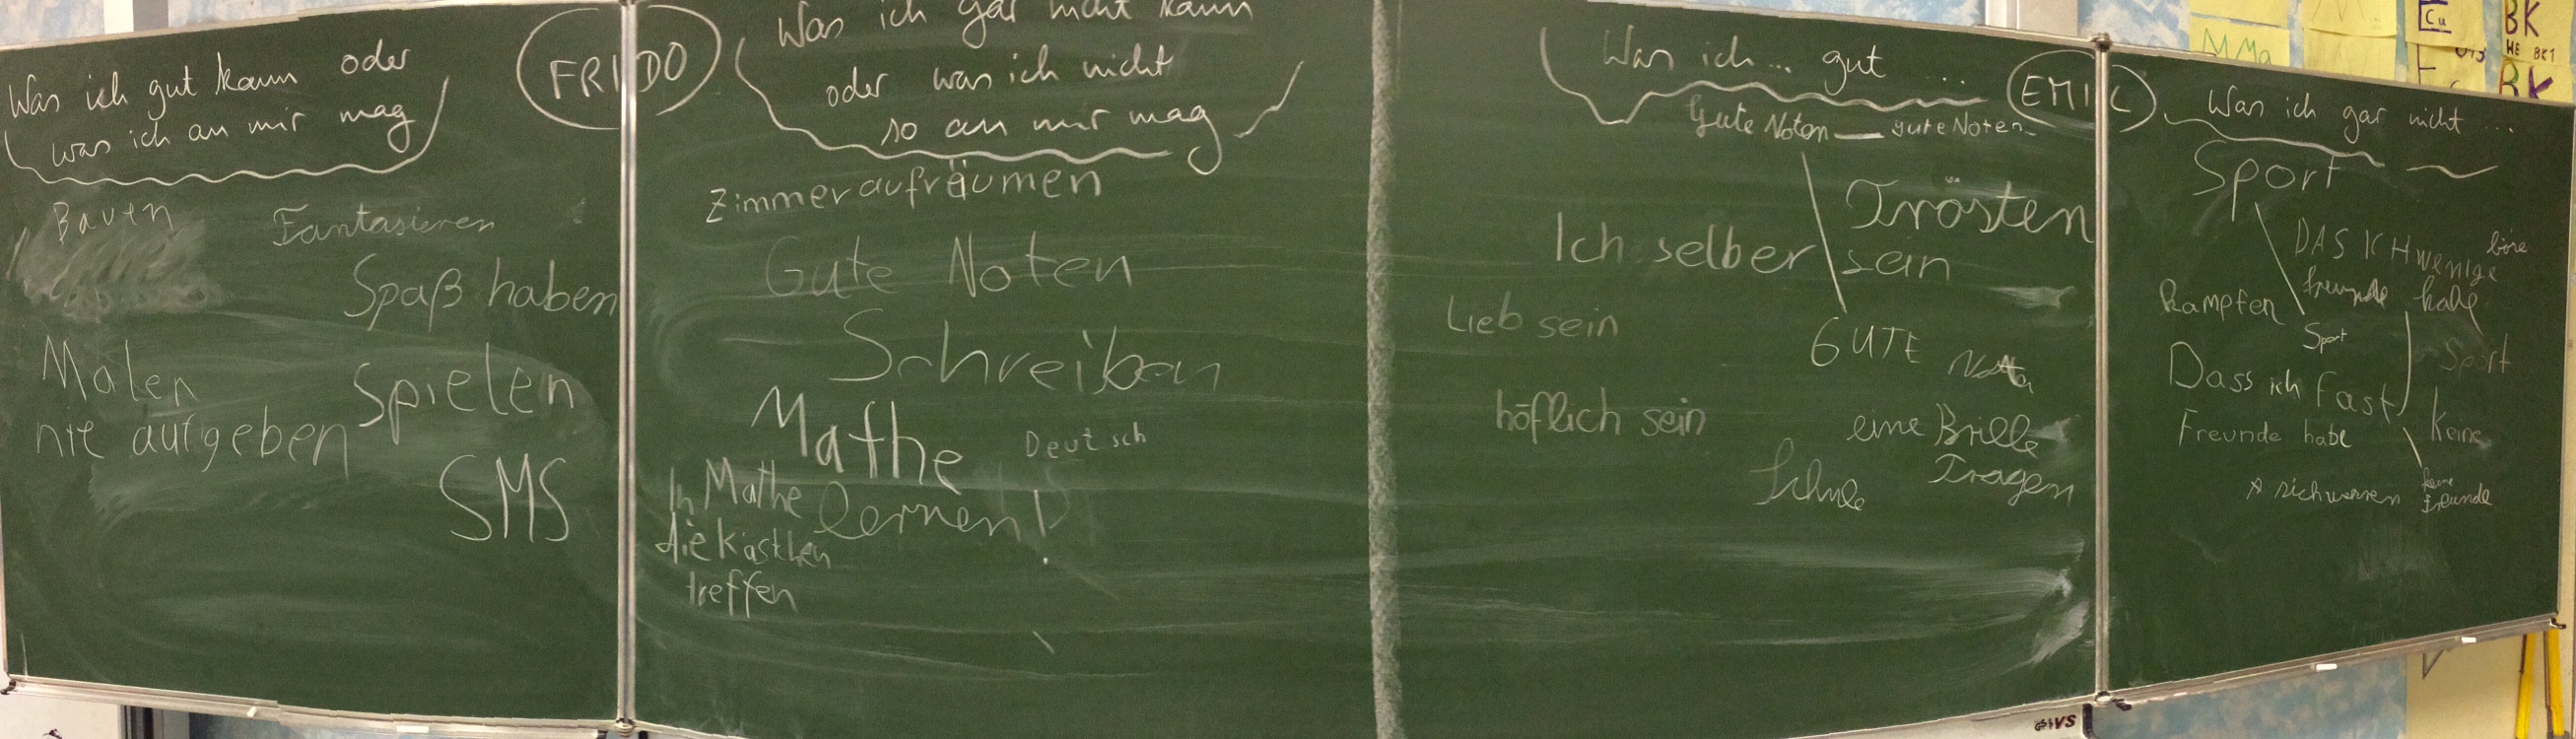 Was ich gut kann oder
was ich an mir mag
FRIDO
Bauen
Fantasieren
Spaß haben
Malen
Spielen
nie aufgeben
SMS
Was ich gar nicht kann
oder was ich nicht
so an mir mag
Zimmer aufräumen
Gute Noten
Schreiben
Mathe
Deutsch
lernen
In Mathe
die Kästchen
treffen
Was ich... gut ...
EMIL
Gute Noten — gute Noten
Trösten
Ich selber sein
Lieb sein
GUTE
höflich sein
eine Brille
Tragen
Schule
Was ich gar nicht ...
Sport
DAS ICH wenige
freunde habe
kämpfen
Sport
Sport
Dass ich fast
Keine
Freunde habe
keine
Freunde
Cu
BK
HE BK1
MMa
BK
VS